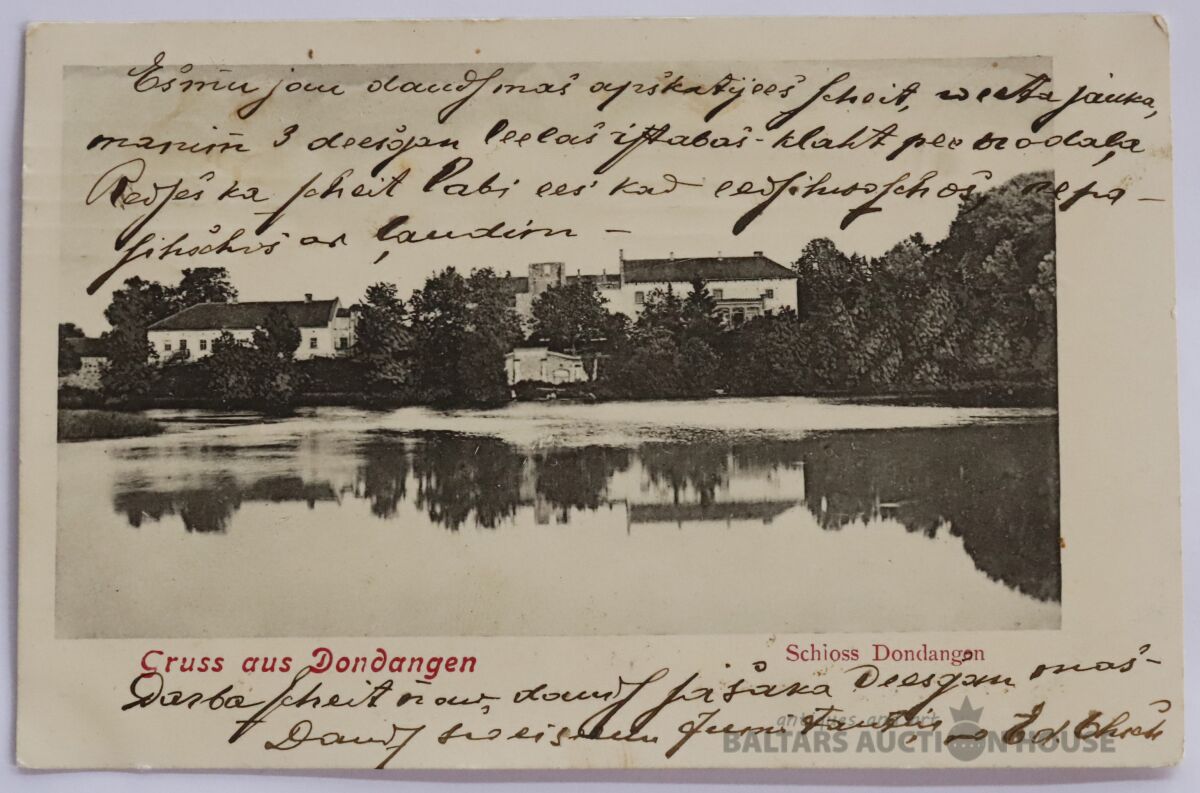 Esmu jau daudsmas apskatijees scheit, weeta jauka,
manim 3 deesgan leelas istabas - klaht pee modala,
Redses ka scheit labi ees kad eedsihwoschos, eepa-
sihschos ar laudim -
Gruss aus Dondangen
Schloss Dondangen
Darba scheit naw daudf ja saka deesgan mas -
Daudf sweizeenu Jums
antiques and art
BALTARS AUCTION HOUSE